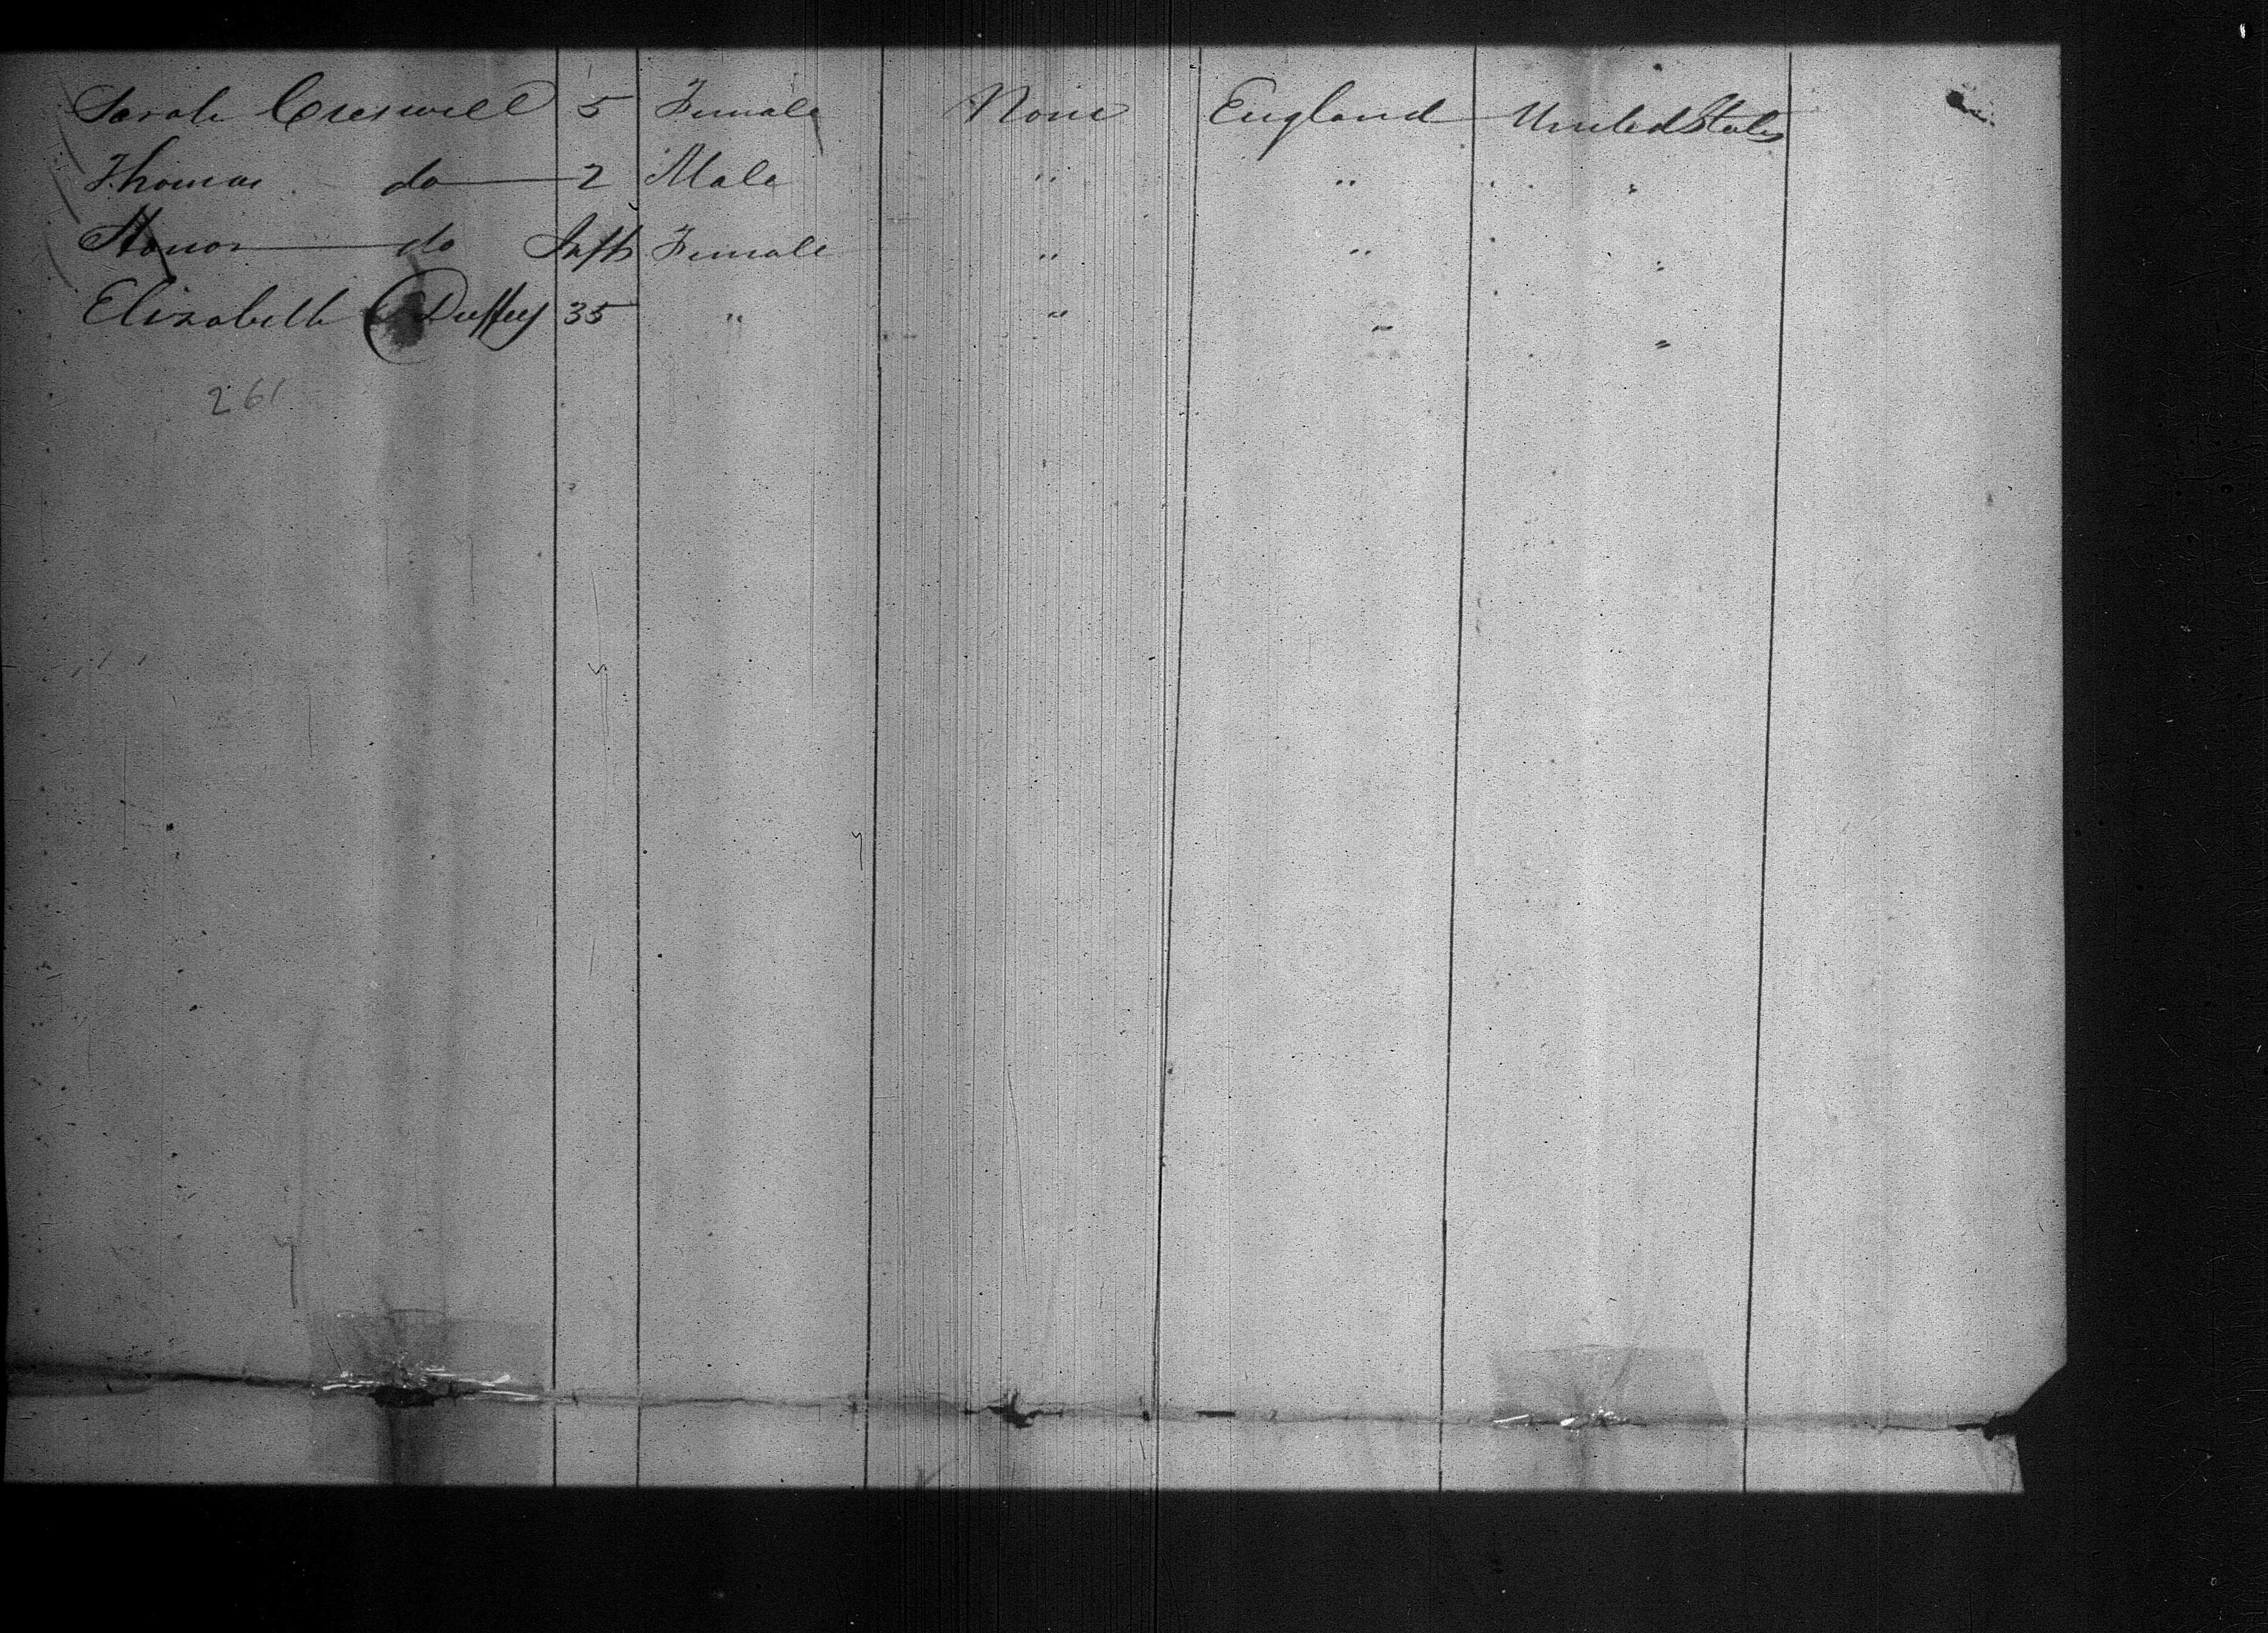 Sarah Creswell 5 Female None England United States
Thomas do 2 Male " " " "
Honor do Inft Female " " " "
Elizabeth Duffey 35 " " " "
261